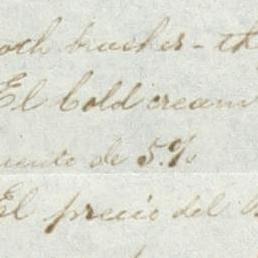 ooth brushes - th
El Cold cream
uento de 5 %
El precio del